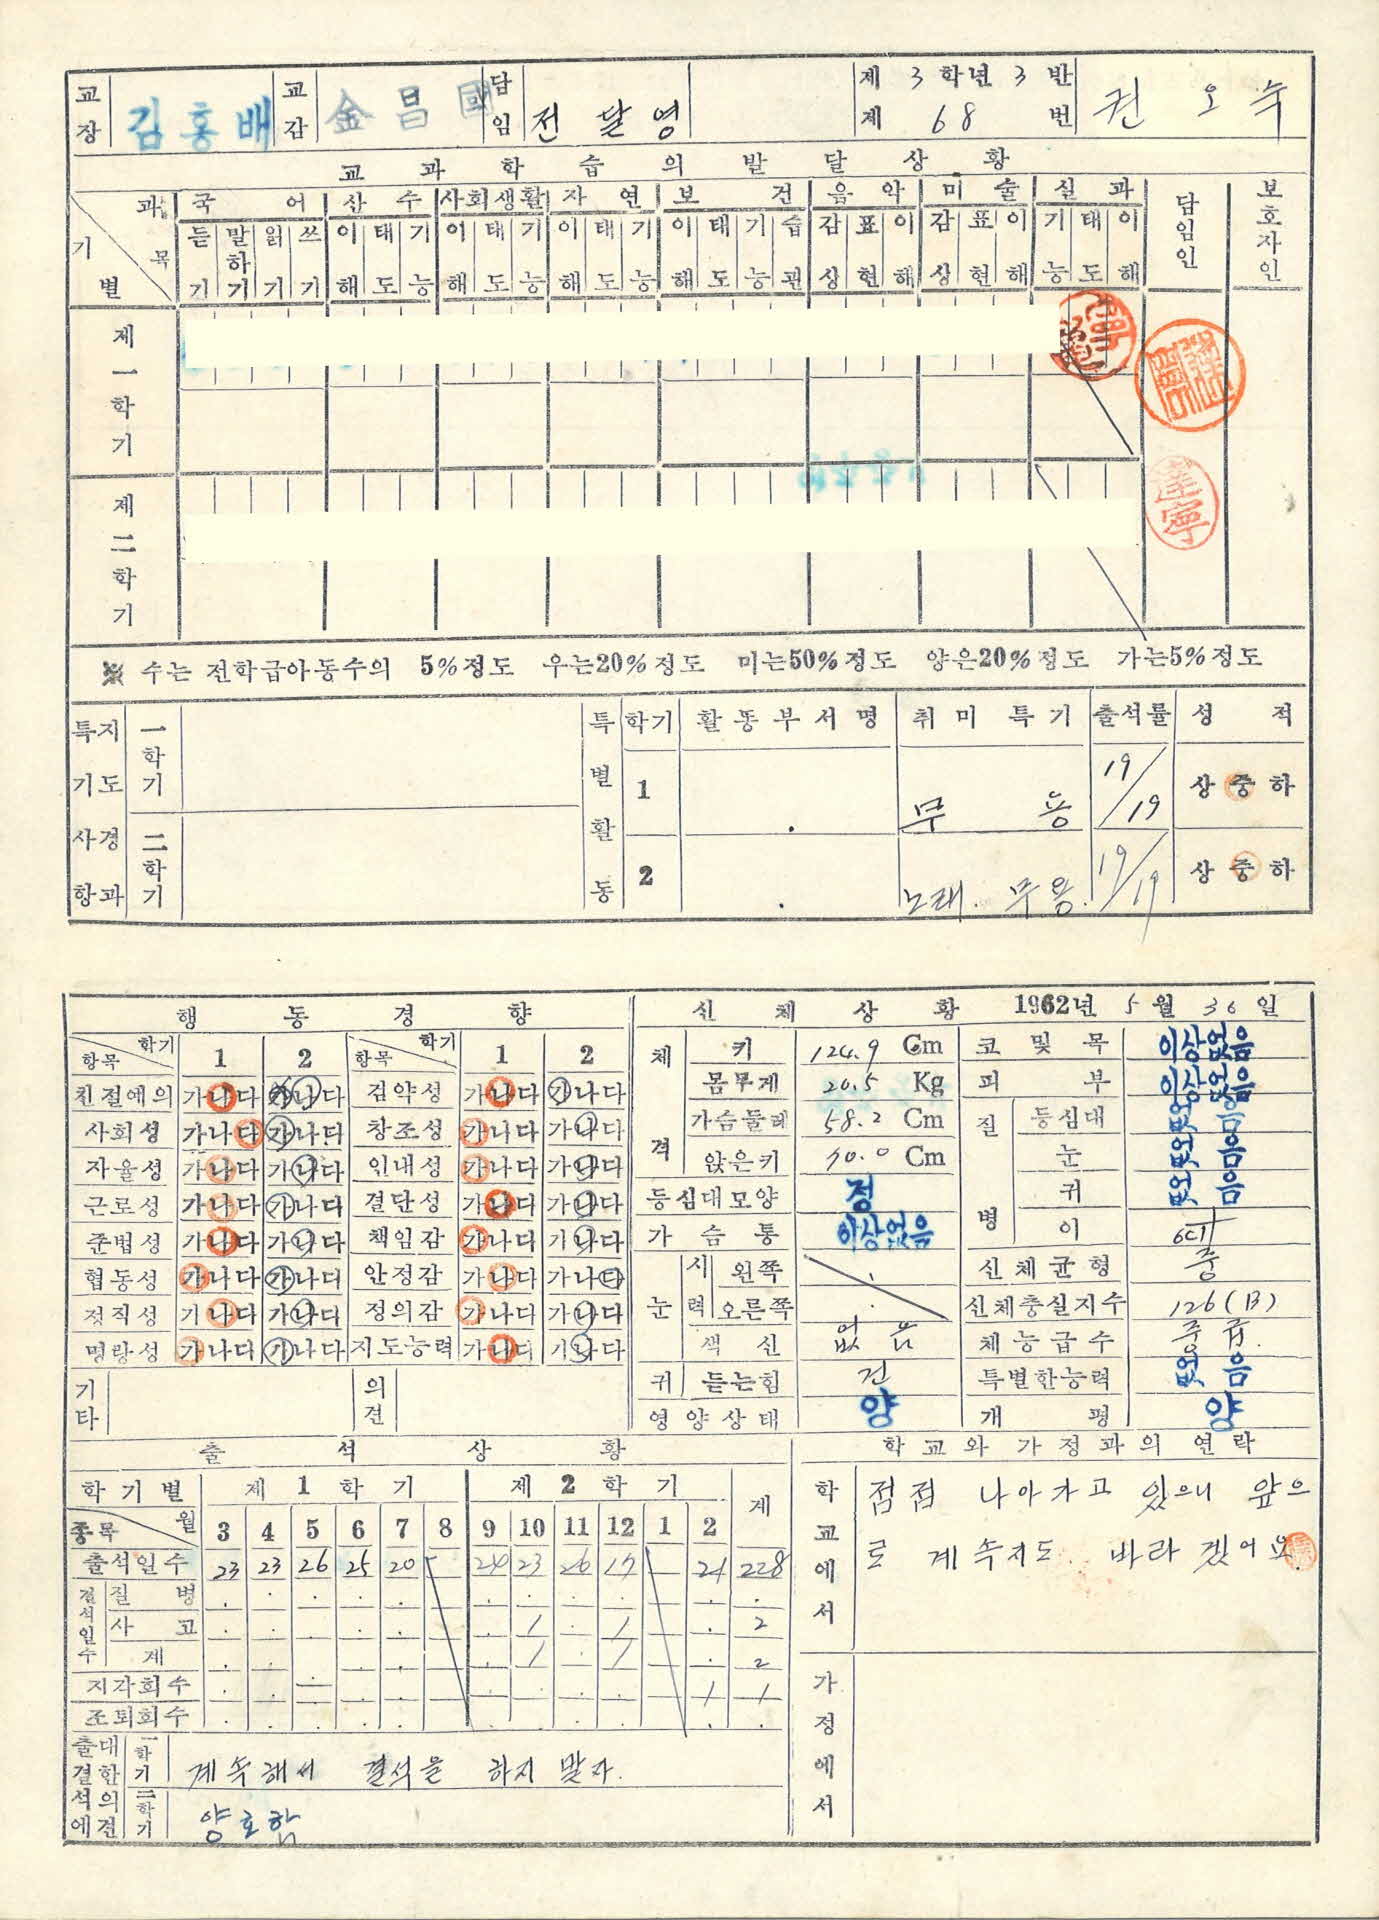 교장 김홍배 교감 金昌國 담임 전달영 제 3 학년 3 반 제 68 번 권오숙
교과학습의발달상황
과목 기별 국어 산수 사회생활 자연 보건 음악 미술 실과 담임인 보호자인
듣기 말하기 읽기 쓰기 이해 태도 기능 이해 태도 기능 이해 태도 기능 이해 태도 기능 습관 감상 표현 이해 감상 표현 이해 기능 태도 이해
제一학기
제二학기 達寧
※ 수는 전학급아동수의 5%정도 우는20%정도 미는50%정도 양은20%정도 가는5%정도
특기사항 지도경과 一학기 특별활동 학기 활동부서명 취미특기 출석률 성적
1 무용 19/19 상 중 하
二학기 2 노래. 무용. 19/19 상 중 하
행동경향
항목 학기 1 2 항목 학기 1 2
친절예의 가나다 가나다 검약성 가나다 가나다
사회성 가나다 가나다 창조성 가나다 가나다
자율성 가나다 가나다 인내성 가나다 가나다
근로성 가나다 가나다 결단성 가나다 가나다
준법성 가나다 가나다 책임감 가나다 가나다
협동성 가나다 가나다 안정감 가나다 가나다
정직성 가나다 가나다 정의감 가나다 가나다
명랑성 가나다 가나다 지도능력 가나다 가나다
기타 의견
신체상황 1962년 5월 30일
체격 키 124.9 Cm 코및목 이상없음
몸무게 20.5 Kg 피부 이상없음
가슴둘레 58.2 Cm 질병 등심대 없음
앉은키 70.0 Cm 눈 없음
등심대모양 정 귀 없음
가슴통 이상없음 이
눈 시력 왼쪽 신체균형 중
오른쪽 신체충실지수 126(B)
색신 없음 체능급수 중급.
귀 듣는힘 건 특별한능력 없음
영양상태 양 개평 양
출석상황
학기별 제1학기 제2학기 계
종목 월 3 4 5 6 7 8 9 10 11 12 1 2
출석일수 23 23 26 25 20 24 23 26 17 21 228
결석일수 질병 . . . . . . . . . . .
사고 . . . . . 1 . 1 . 2
계 . . . . . 1 . 1 . 2
지각회수 . . . . . . . . . 1 1
조퇴회수 . . . . . . . . . . .
출결석에 대한의견 一학기 계속해서 결석을 하지 말자.
二학기 양호함
학교와 가정과의 연락
학교에서 점점 나아가고 있으니 앞으
로 계속지도 바라겠어요.
가정에서